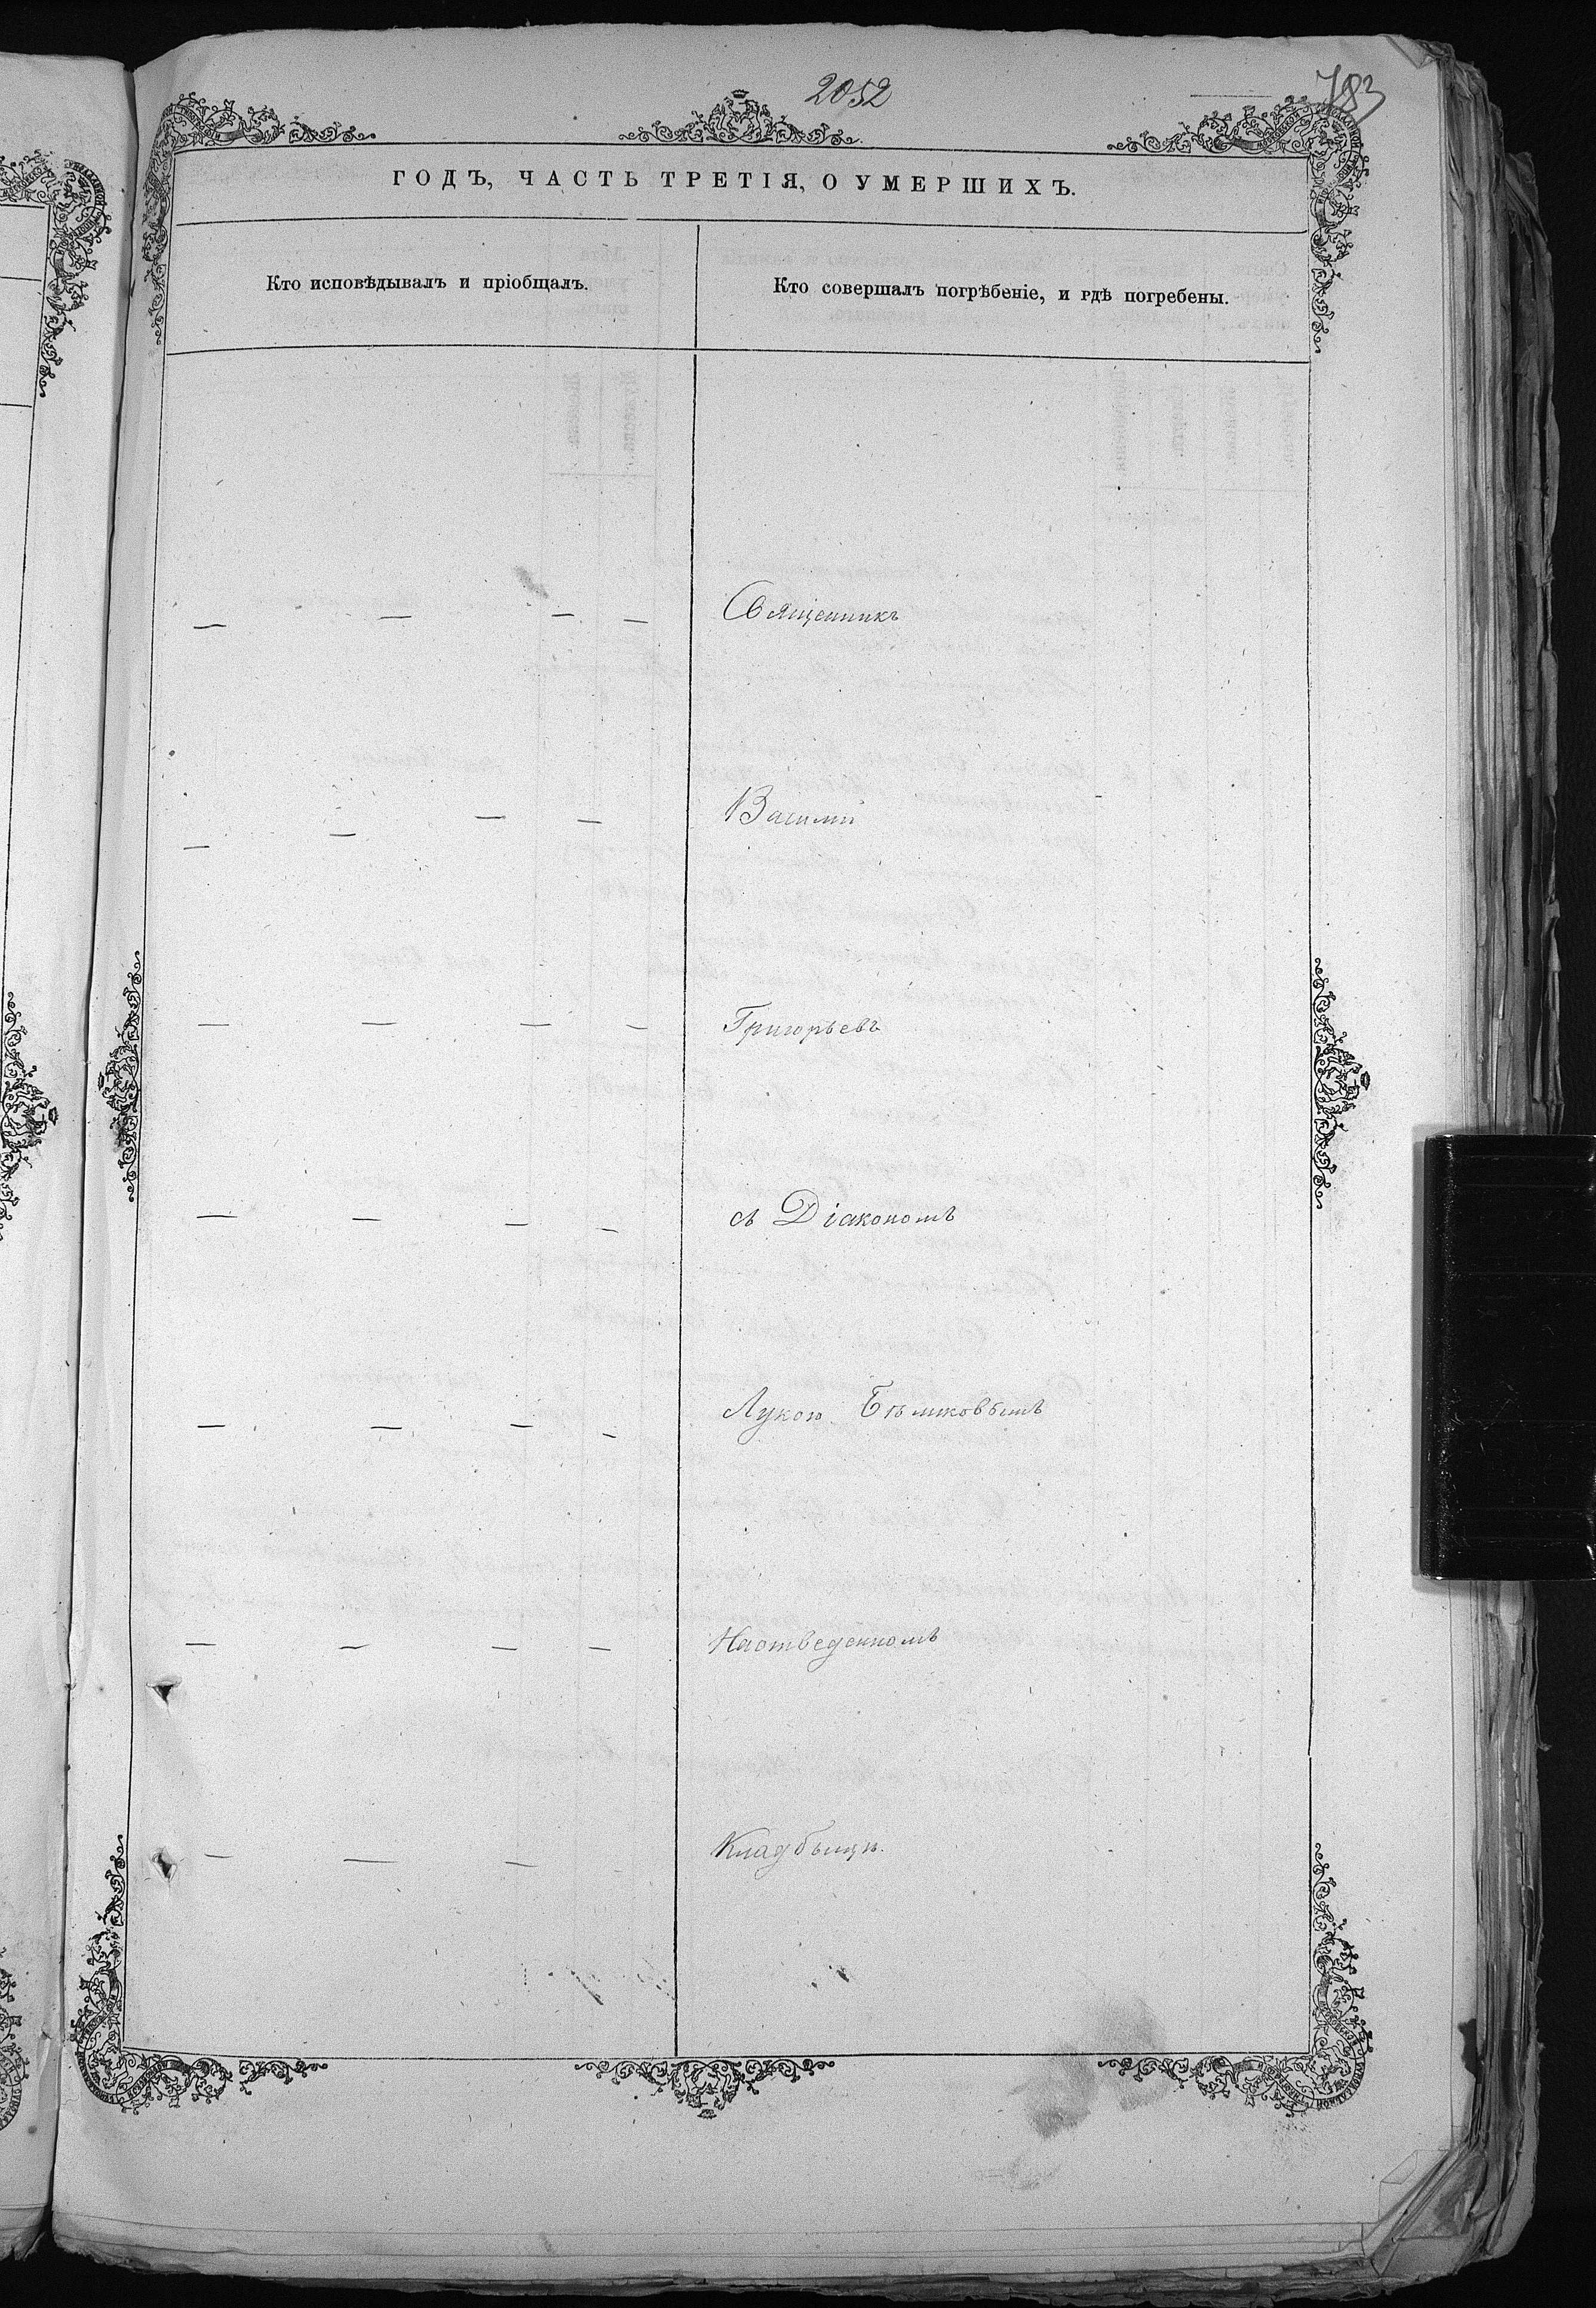 2052
783
ГОДЪ, ЧАСТЬ ТРЕТІЯ, О УМЕРШИХЪ.
Кто исповѣдывалъ и пріобщалъ.
Кто совершалъ погрѣбеніе, и гдѣ погребены.
— — — — Священникъ
— — — — Василий
— — — — Григорьевъ
— — — — съ Діакономъ
— — — — Лукою
— — — — Наотведенномъ
— — — Кладбыщѣ.